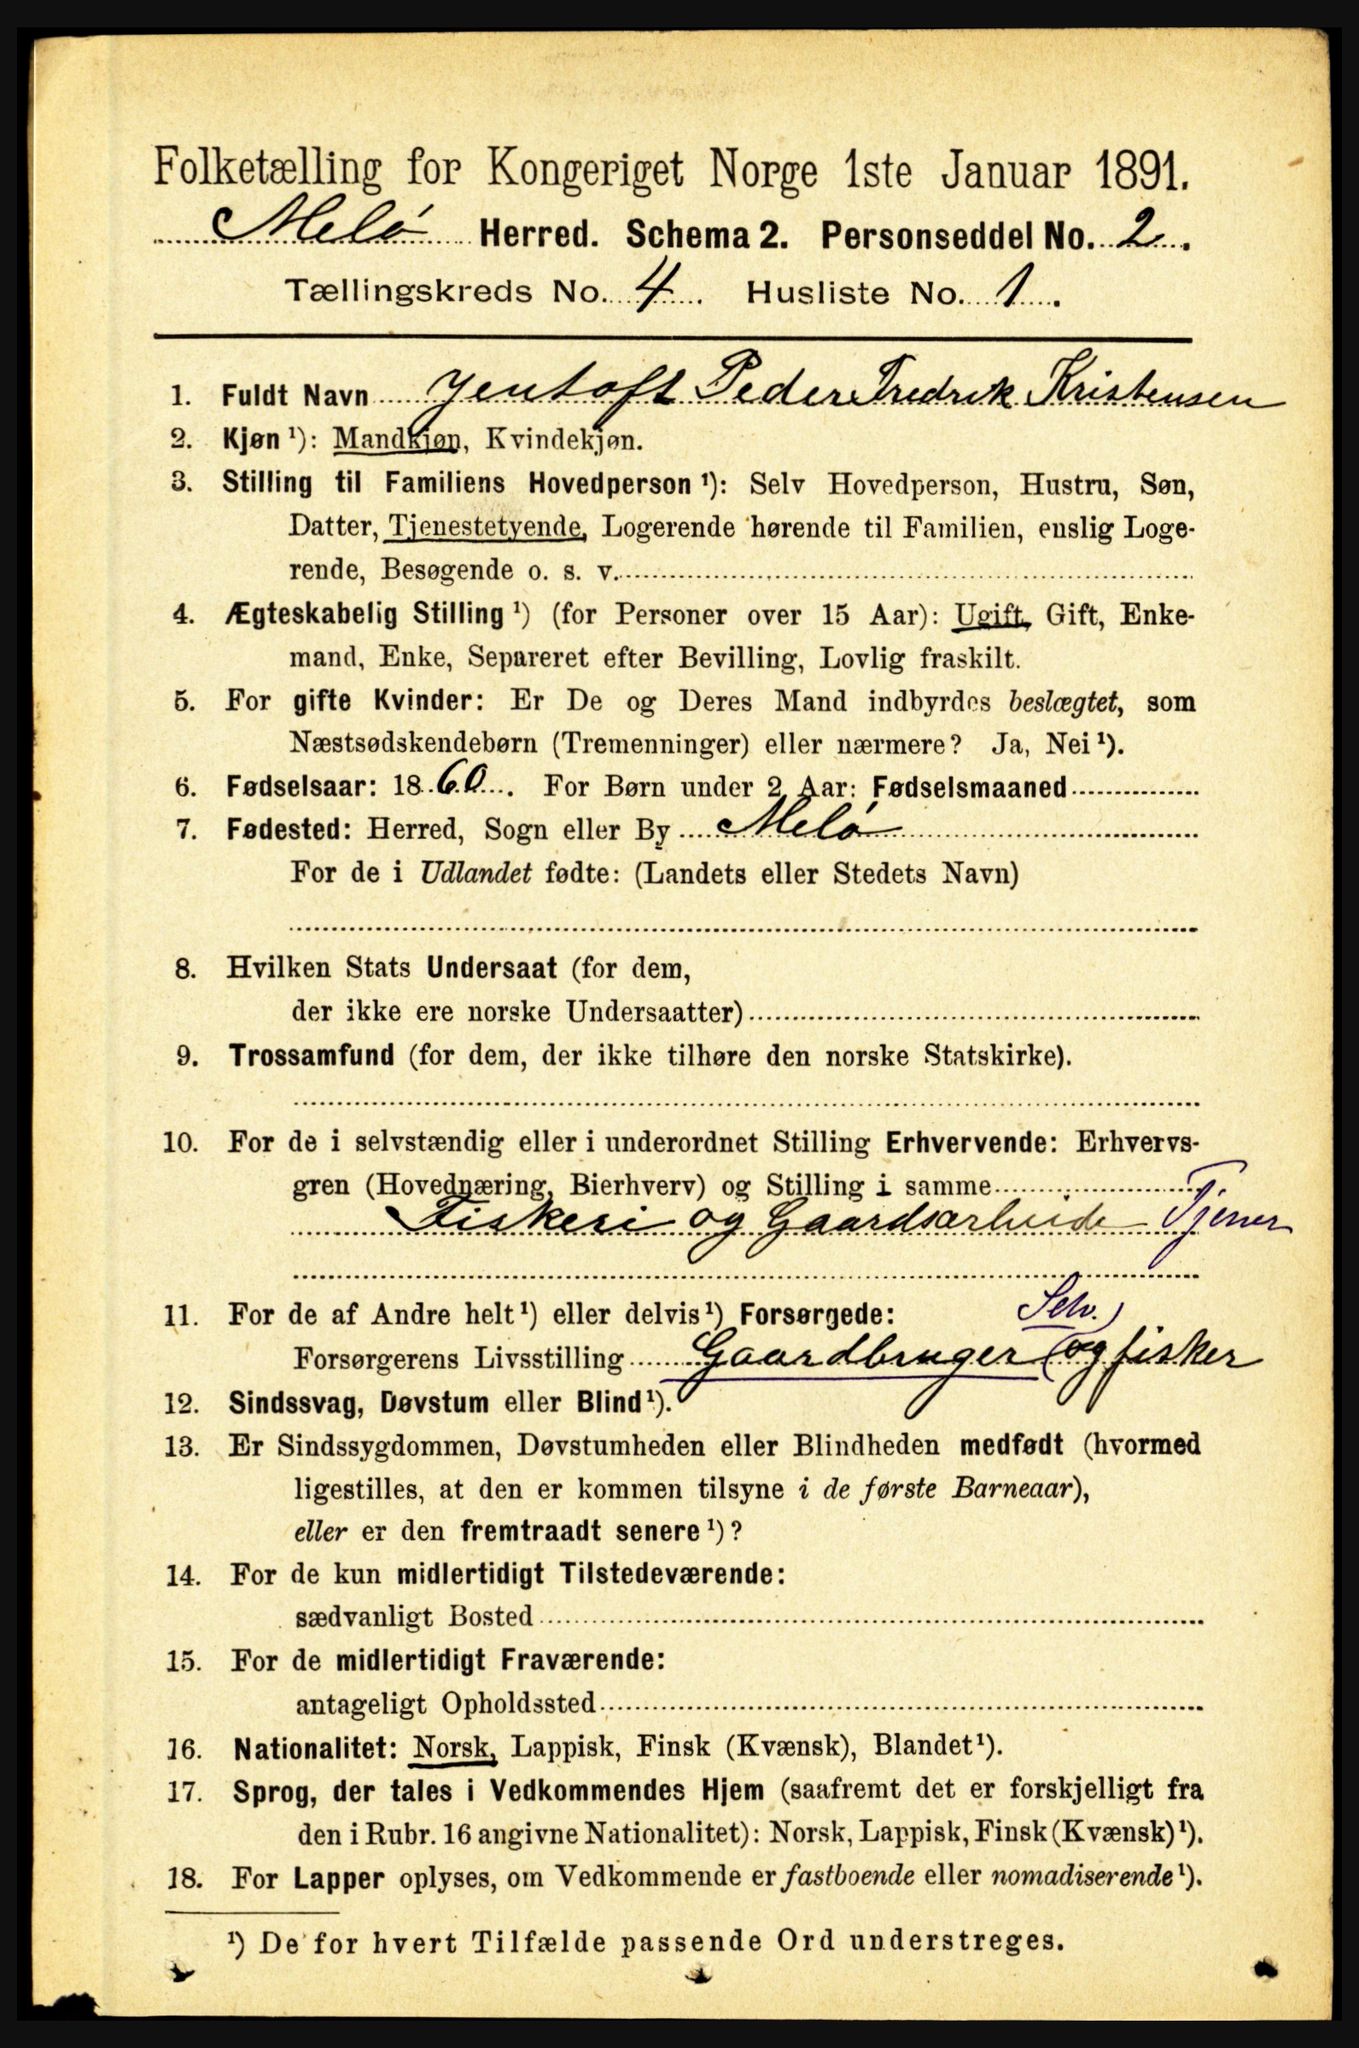 Folketælling for Kongeriget Norge 1ste Januar 1891.
Melø Herred. Schema 2. Personseddel No. 2.
Tællingskreds No. 4. Husliste No. 1.
1. Fuldt Navn Jentoft Peder Fredrik Kristensen
2. Kjøn ¹): Mandkjøn, Kvindekjøn.
3. Stilling til Familiens Hovedperson ¹): Selv Hovedperson, Hustru, Søn,
Datter, Tjenestetyende, Logerende hørende til Familien, enslig Loge-
rende, Besøgende o. s. v.
4. Ægteskabelig Stilling ¹) (for Personer over 15 Aar): Ugift, Gift, Enke-
mand, Enke, Separeret efter Bevilling, Lovlig fraskilt.
5. For gifte Kvinder: Er De og Deres Mand indbyrdes beslægtet, som
Næstsødskendebørn (Tremenninger) eller nærmere? Ja, Nei ¹).
6. Fødselsaar: 1860. For Børn under 2 Aar: Fødselsmaaned
7. Fødested: Herred, Sogn eller By Melø
For de i Udlandet fødte: (Landets eller Stedets Navn)
8. Hvilken Stats Undersaat (for dem,
der ikke ere norske Undersaatter)
9. Trossamfund (for dem, der ikke tilhøre den norske Statskirke).
10. For de i selvstændig eller i underordnet Stilling Erhvervende: Erhvervs-
gren (Hovednæring, Bierhverv) og Stilling i samme
Fiskeri og Gaardsarbeide Tjener
11. For de af Andre helt ¹) eller delvis ¹) Forsørgede: Selv.)
Forsørgerens Livsstilling Gaardbruger (og fisker
12. Sindssvag, Døvstum eller Blind ¹).
13. Er Sindssygdommen, Døvstumheden eller Blindheden medfødt (hvormed
ligestilles, at den er kommen tilsyne i de første Barneaar),
eller er den fremtraadt senere ¹)?
14. For de kun midlertidigt Tilstedeværende:
sædvanligt Bosted
15. For de midlertidigt Fraværende:
antageligt Opholdssted
16. Nationalitet: Norsk, Lappisk, Finsk (Kvænsk), Blandet ¹).
17. Sprog, der tales i Vedkommendes Hjem (saafremt det er forskjelligt fra
den i Rubr. 16 angivne Nationalitet): Norsk, Lappisk, Finsk (Kvænsk) ¹).
18. For Lapper oplyses, om Vedkommende er fastboende eller nomadiserende ¹).
¹) De for hvert Tilfælde passende Ord understreges.